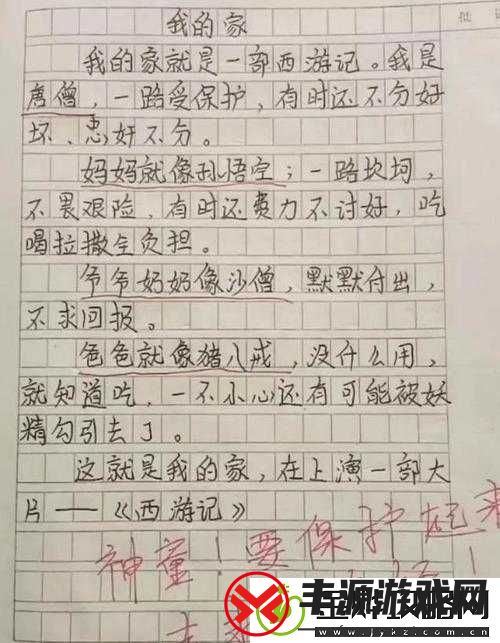 我的家
我的家就是一部西游记。我是
唐僧，一路受保护，有时还不分好
坏、忠奸不分。
妈妈就像孙悟空；一路坎坷，
不畏艰险，有时还费力不讨好，吃
喝拉撒全负担。
爷爷奶奶像沙僧，默默付出，
不求回报。
爸爸就像猪八戒，没什么用，
就知道吃，一不小心还有可能被妖
精勾引去了。
这就是我的家，在上演一部大
片——《西游记》
神童！要保护起来
丰源游戏网
www.lykz.com.cn